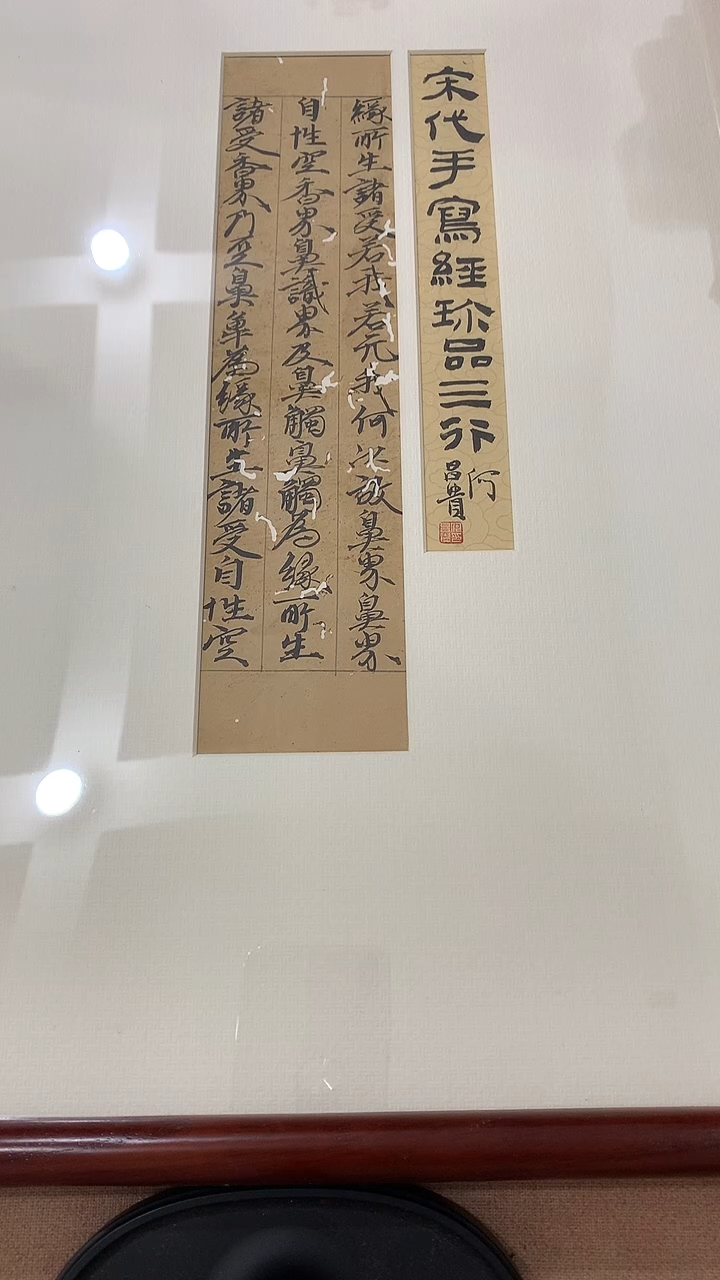 宋代手寫經珍品三行
何
緣所生諸受若我若无我何以故鼻界鼻界
自性空香界鼻識界及鼻觸鼻觸為緣所生
諸受香界乃至鼻單為緣所生諸受自性空